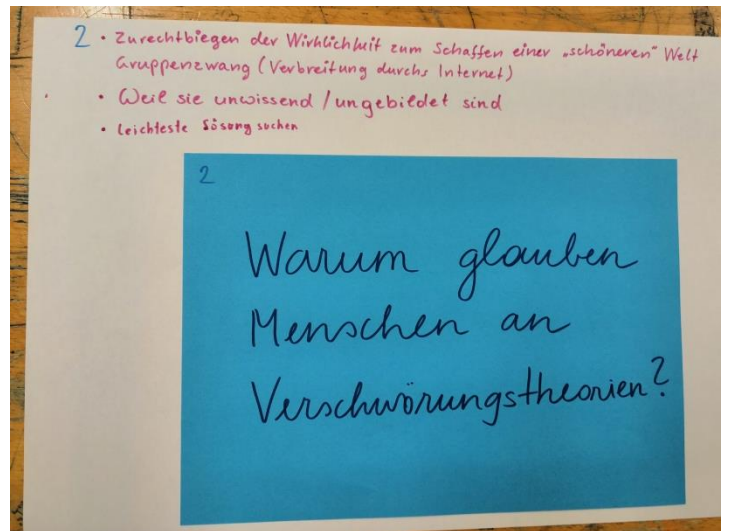 2 • Zurechtbiegen der Wirklichkeit zum Schaffen einer „schöneren" Welt
Gruppenzwang (Verbreitung durchs Internet)
• Weil sie unwissend / ungebildet sind
• leichteste Lösung suchen
2
Warum glauben
Menschen an
Verschwörungstheorien?